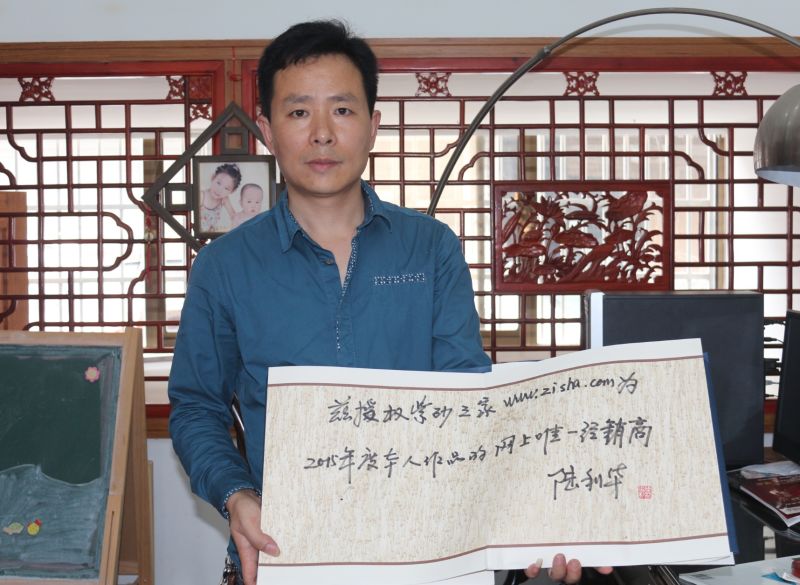 兹授权紫砂之家www.zisha.com为
2015年度本人作品的网上唯一经销商
陆利华